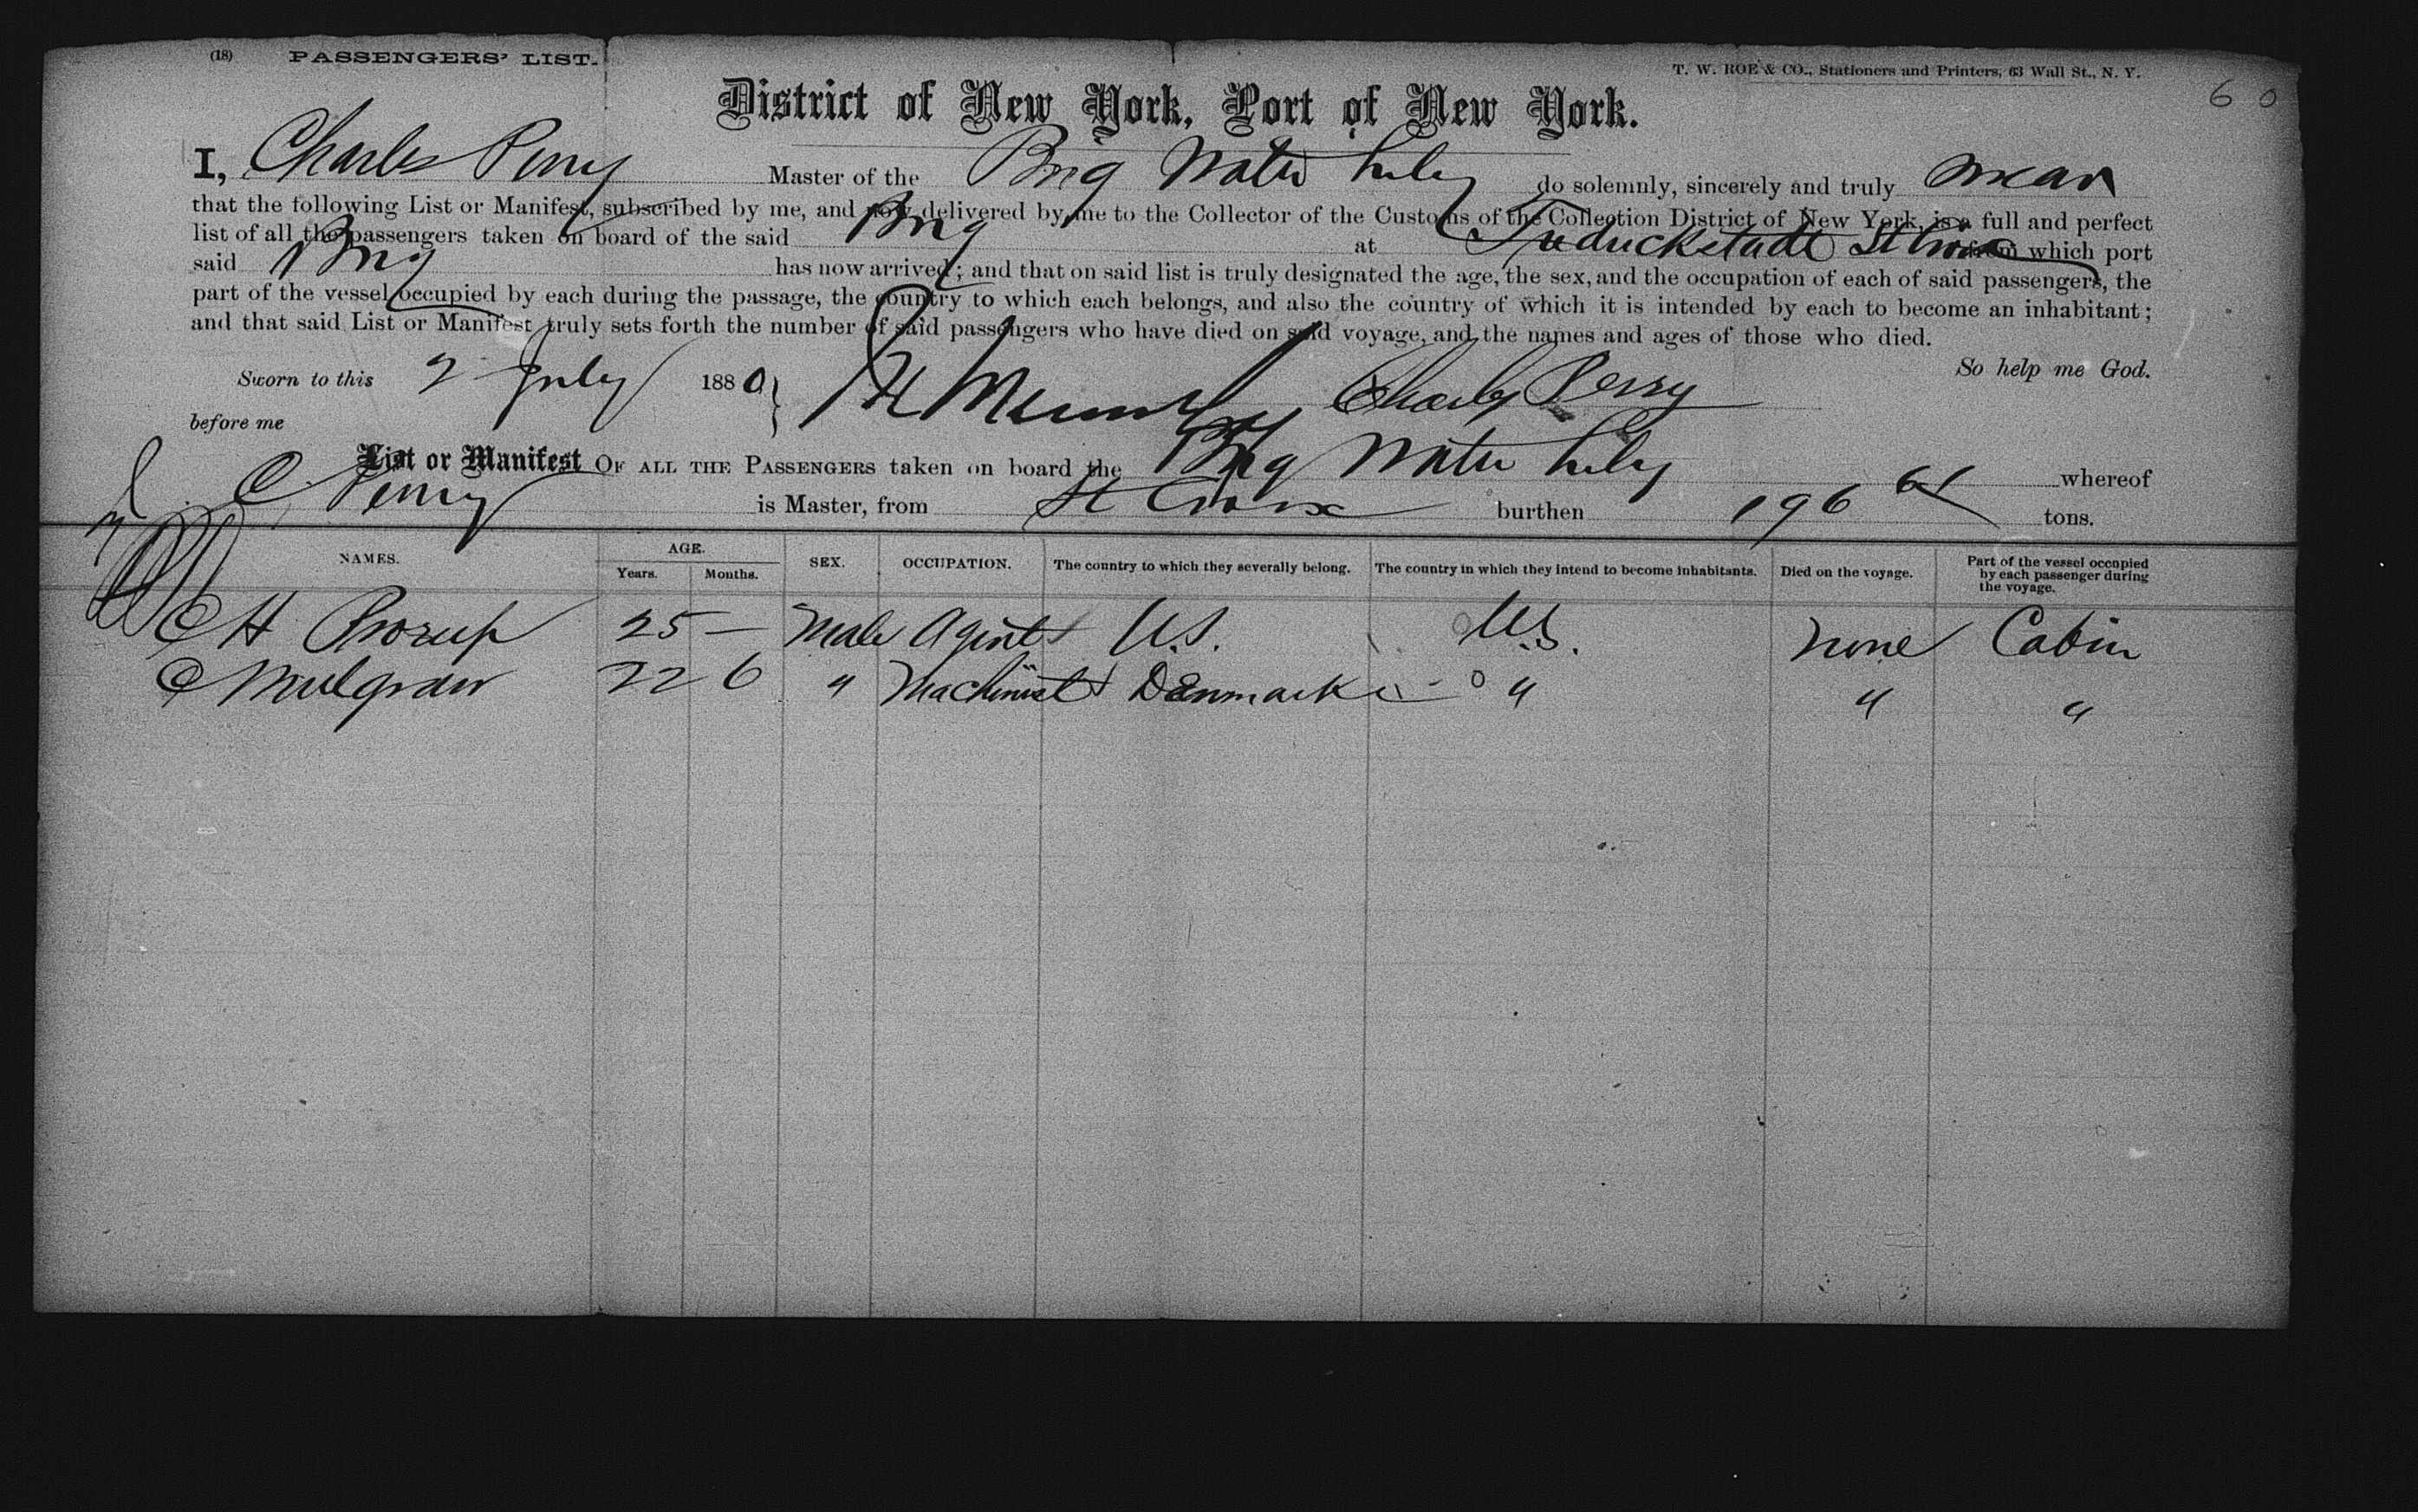 (18) PASSENGERS' LIST.
T. W. ROE & CO., Stationers and Printers, 63 Wall St., N. Y.
60
District of New York, Port of New York.
I, Charles Perry Master of the Brig Water Lily do solemnly, sincerely and truly swear
that the following List or Manifest, subscribed by me, and now delivered by me to the Collector of the Customs of the Collection District of New York, is a full and perfect
list of all the passengers taken on board of the said Brig at Freduckstadt St Croix from which port
said Brig has now arrived; and that on said list is truly designated the age, the sex, and the occupation of each of said passengers, the
part of the vessel occupied by each during the passage, the country to which each belongs, and also the country of which it is intended by each to become an inhabitant;
and that said List or Manifest truly sets forth the number of said passengers who have died on said voyage, and the names and ages of those who died.
So help me God.
Sworn to this 2 July 1880 Charles Perry
before me
List or Manifest OF ALL THE PASSENGERS taken on board the Brig Water Lily whereof
C Perry is Master, from St Croix burthen 196 61 tons.
NAMES. AGE. Years. Months. SEX. OCCUPATION. The country to which they severally belong. The country in which they intend to become inhabitants. Died on the voyage. Part of the vessel occupied by each passenger during the voyage.
C H 25 — Male Agent U.S. U.S. None Cabin
C Mulgraw 22 6 " Machinist Denmark " " "